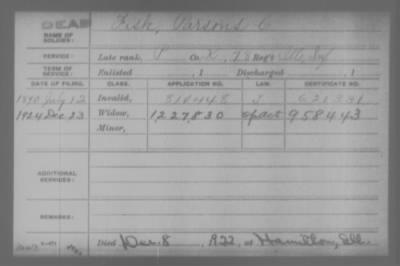 DEAD
NAME OF SOLDIER: Fisk, Parsons C
SERVICE: Late rank, P Co. K, 78 Reg't Ills Inf
TERM OF SERVICE: Enlisted , 1 Discharged , 1
DATE OF FILING. CLASS. APPLICATION NO. LAW. CERTIFICATE NO.
1890 July 12 Invalid, J
1924 Dec 23 Widow, 1,227,830 958443
Minor,
ADDITIONAL SERVICES:
REMARKS:
Died Dec. 8, 1922, at Hamilton, Ill.